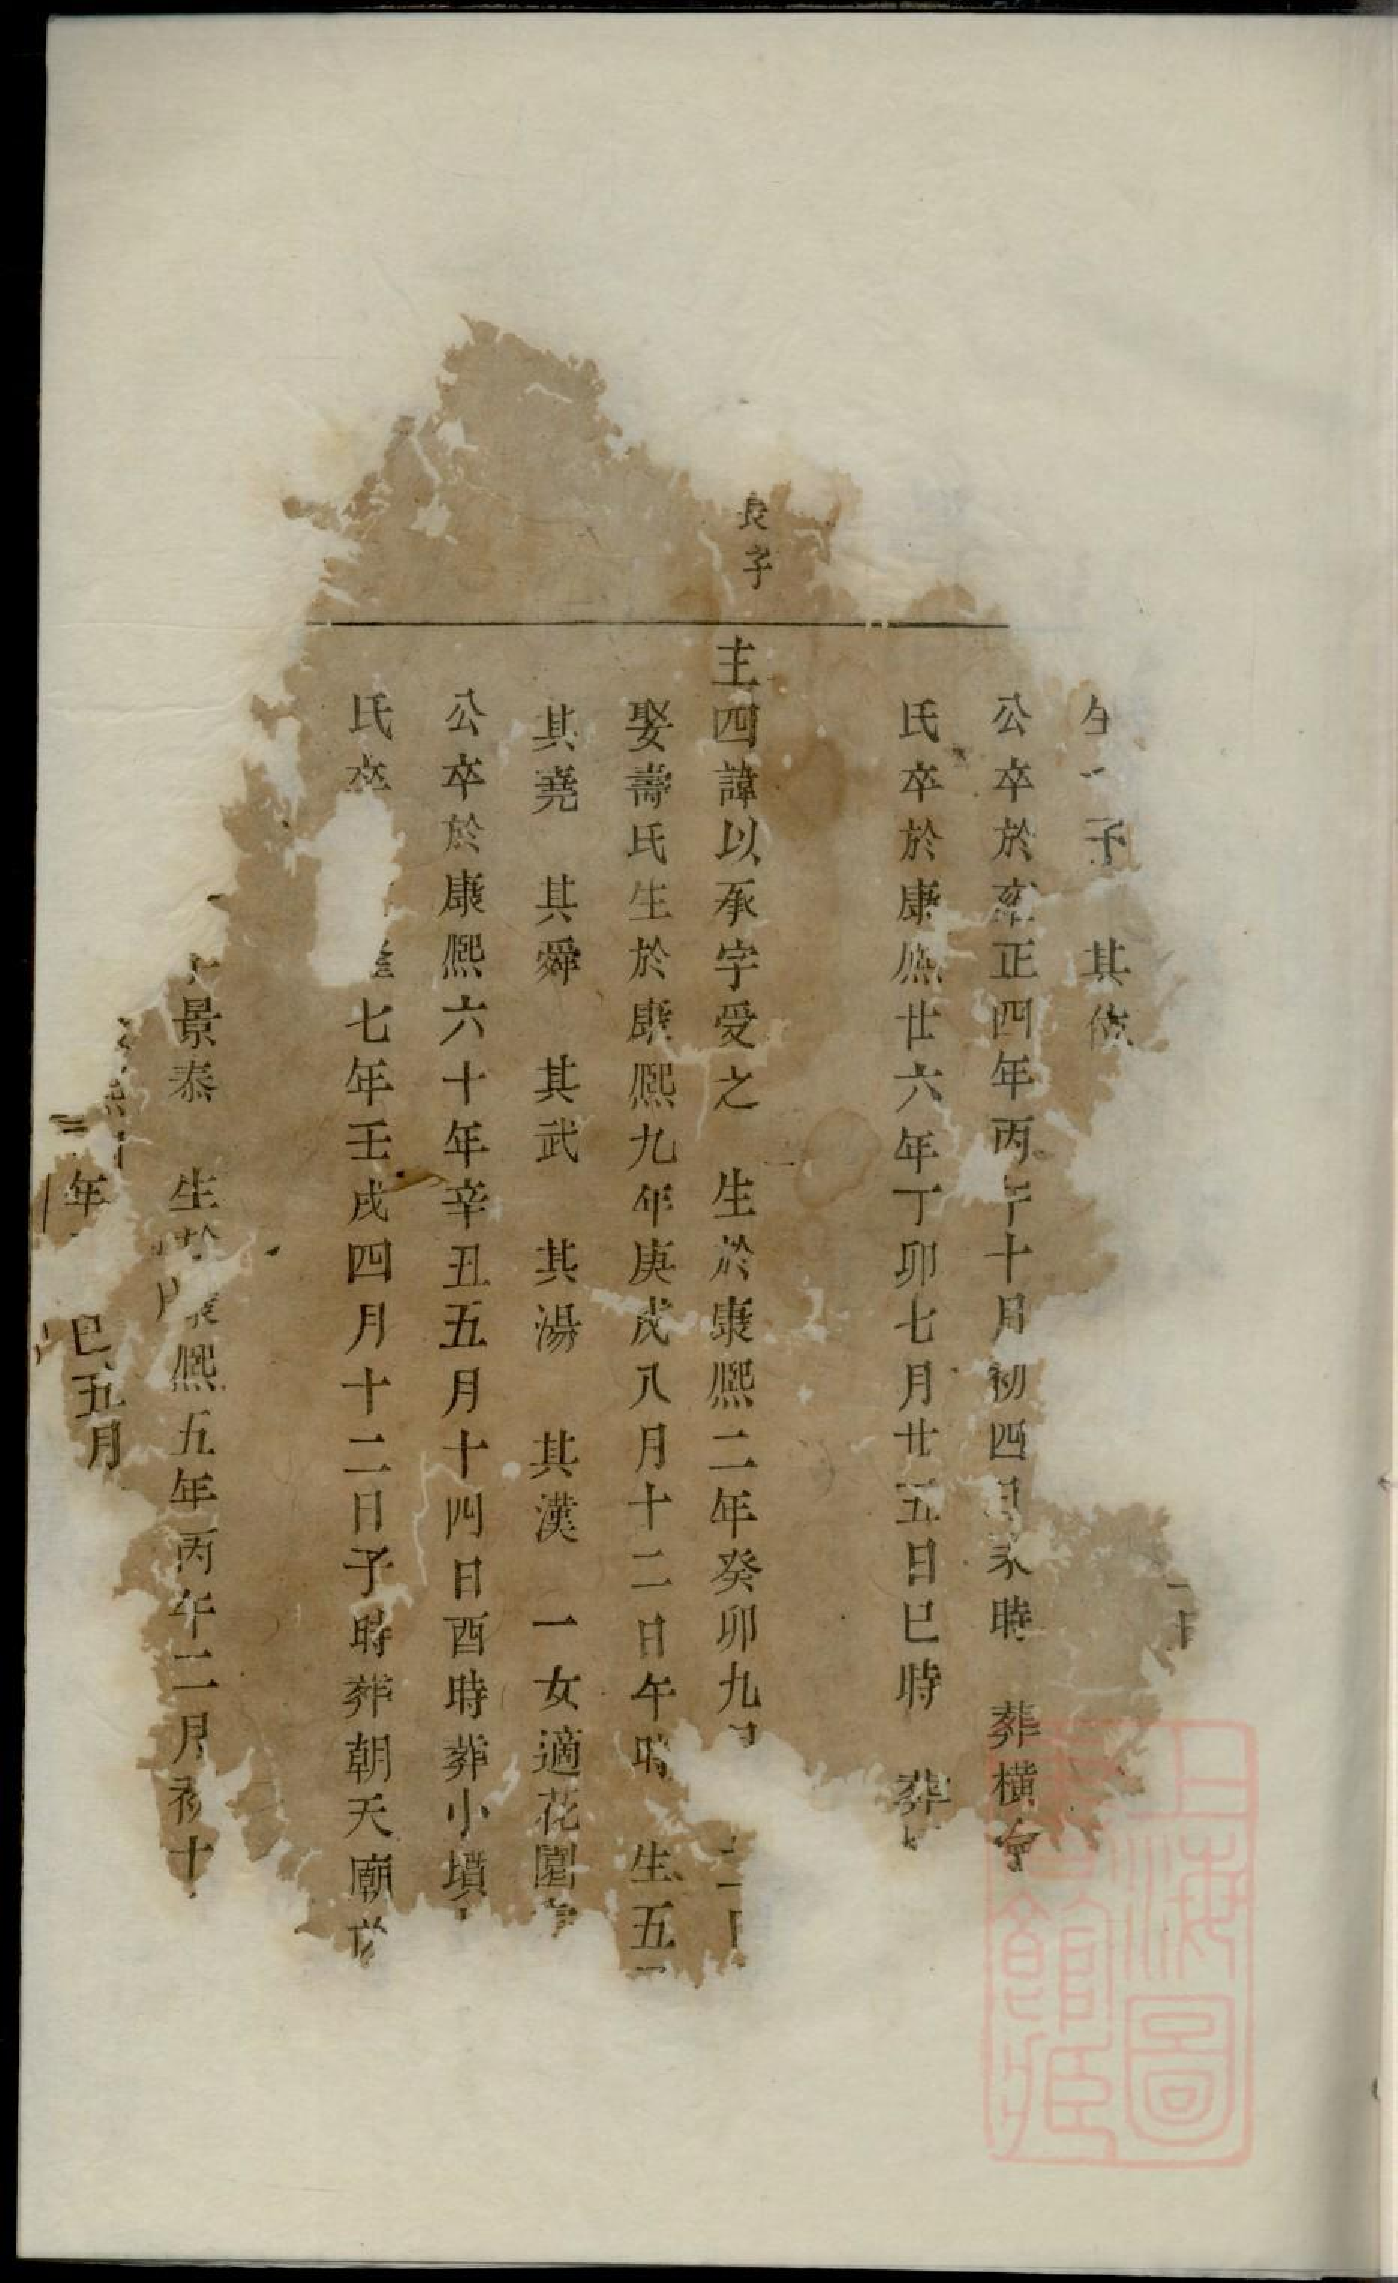 子 其
公卒於雍正四年丙午十月初四日 時 葬橫
氏卒於康熙廿六年丁卯七月廿五日巳時 葬
長子
主四諱以承字受之 生於康熙二年癸卯九月
娶壽氏生於康熙九年庚戌八月十二日午時 生五
其堯 其舜 其武 其湯 其漢 一女適花園
公卒於康熙六十年辛丑五月十四日酉時葬小墳
氏卒 隆七年壬戌四月十二日子時葬朝天廟
景泰 生於康熙五年丙午二月初十
二年 巳五月
上海圖書館藏